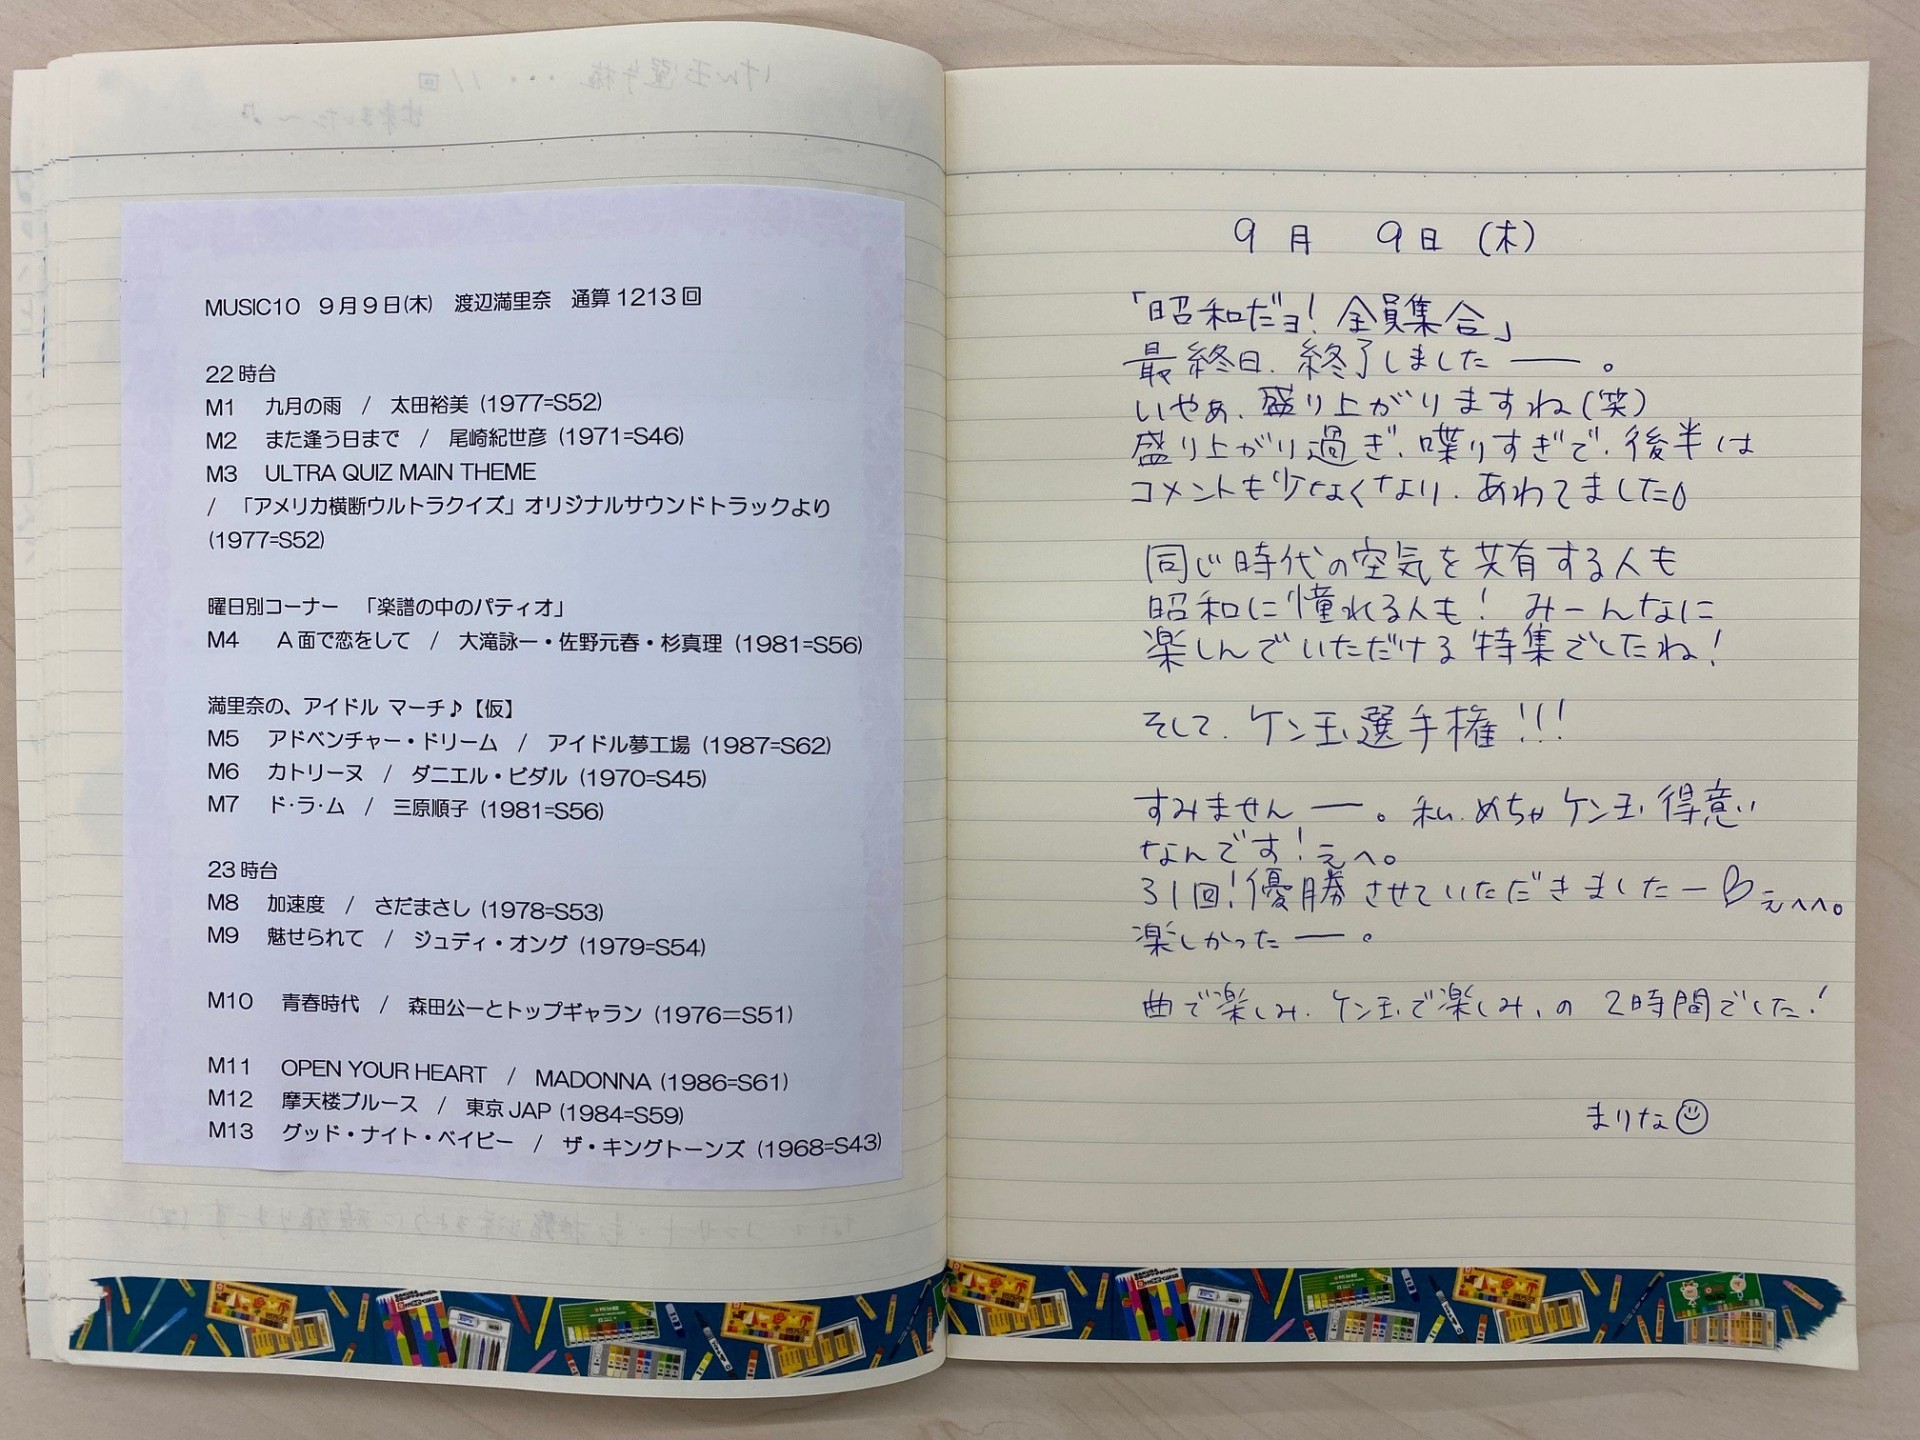 MUSIC10 9月9日(木) 渡辺満里奈 通算1213回
22時台
M1 九月の雨 / 太田裕美 (1977=S52)
M2 また逢う日まで / 尾崎紀世彦 (1971=S46)
M3 ULTRA QUIZ MAIN THEME
/ 「アメリカ横断ウルトラクイズ」オリジナルサウンドトラックより
(1977=S52)
曜日別コーナー 「楽譜の中のパティオ」
M4 A面で恋をして / 大滝詠一・佐野元春・杉真理 (1981=S56)
満里奈の、アイドル マーチ♪【仮】
M5 アドベンチャー・ドリーム / アイドル夢工場 (1987=S62)
M6 カトリーヌ / ダニエル・ビダル (1970=S45)
M7 ド・ラ・ム / 三原順子 (1981=S56)
23時台
M8 加速度 / さだまさし (1978=S53)
M9 魅せられて / ジュディ・オング (1979=S54)
M10 青春時代 / 森田公一とトップギャラン (1976=S51)
M11 OPEN YOUR HEART / MADONNA (1986=S61)
M12 摩天楼ブルース / 東京JAP (1984=S59)
M13 グッド・ナイト・ベイビー / ザ・キングトーンズ (1968=S43)
9月 9日 (木)
「昭和だョ!全員集合」
最終日、終了しましたー。
いやぁ、盛り上がりますね(笑)
盛り上がり過ぎ、喋りすぎで、後半は
コメントも少なくなり、あわてました
同じ時代の空気を共有する人も
昭和に憧れる人も! みーんなに
楽しんでいただける特集でしたね!
そして、ケン玉選手権!!!
すみませんー。私、めちゃケン玉得意
なんです!えへ。
31回!優勝させていただきましたー♡えへへ。
楽しかったー。
曲で楽しみ、ケン玉で楽しみ、の 2時間でした!
まりな☺